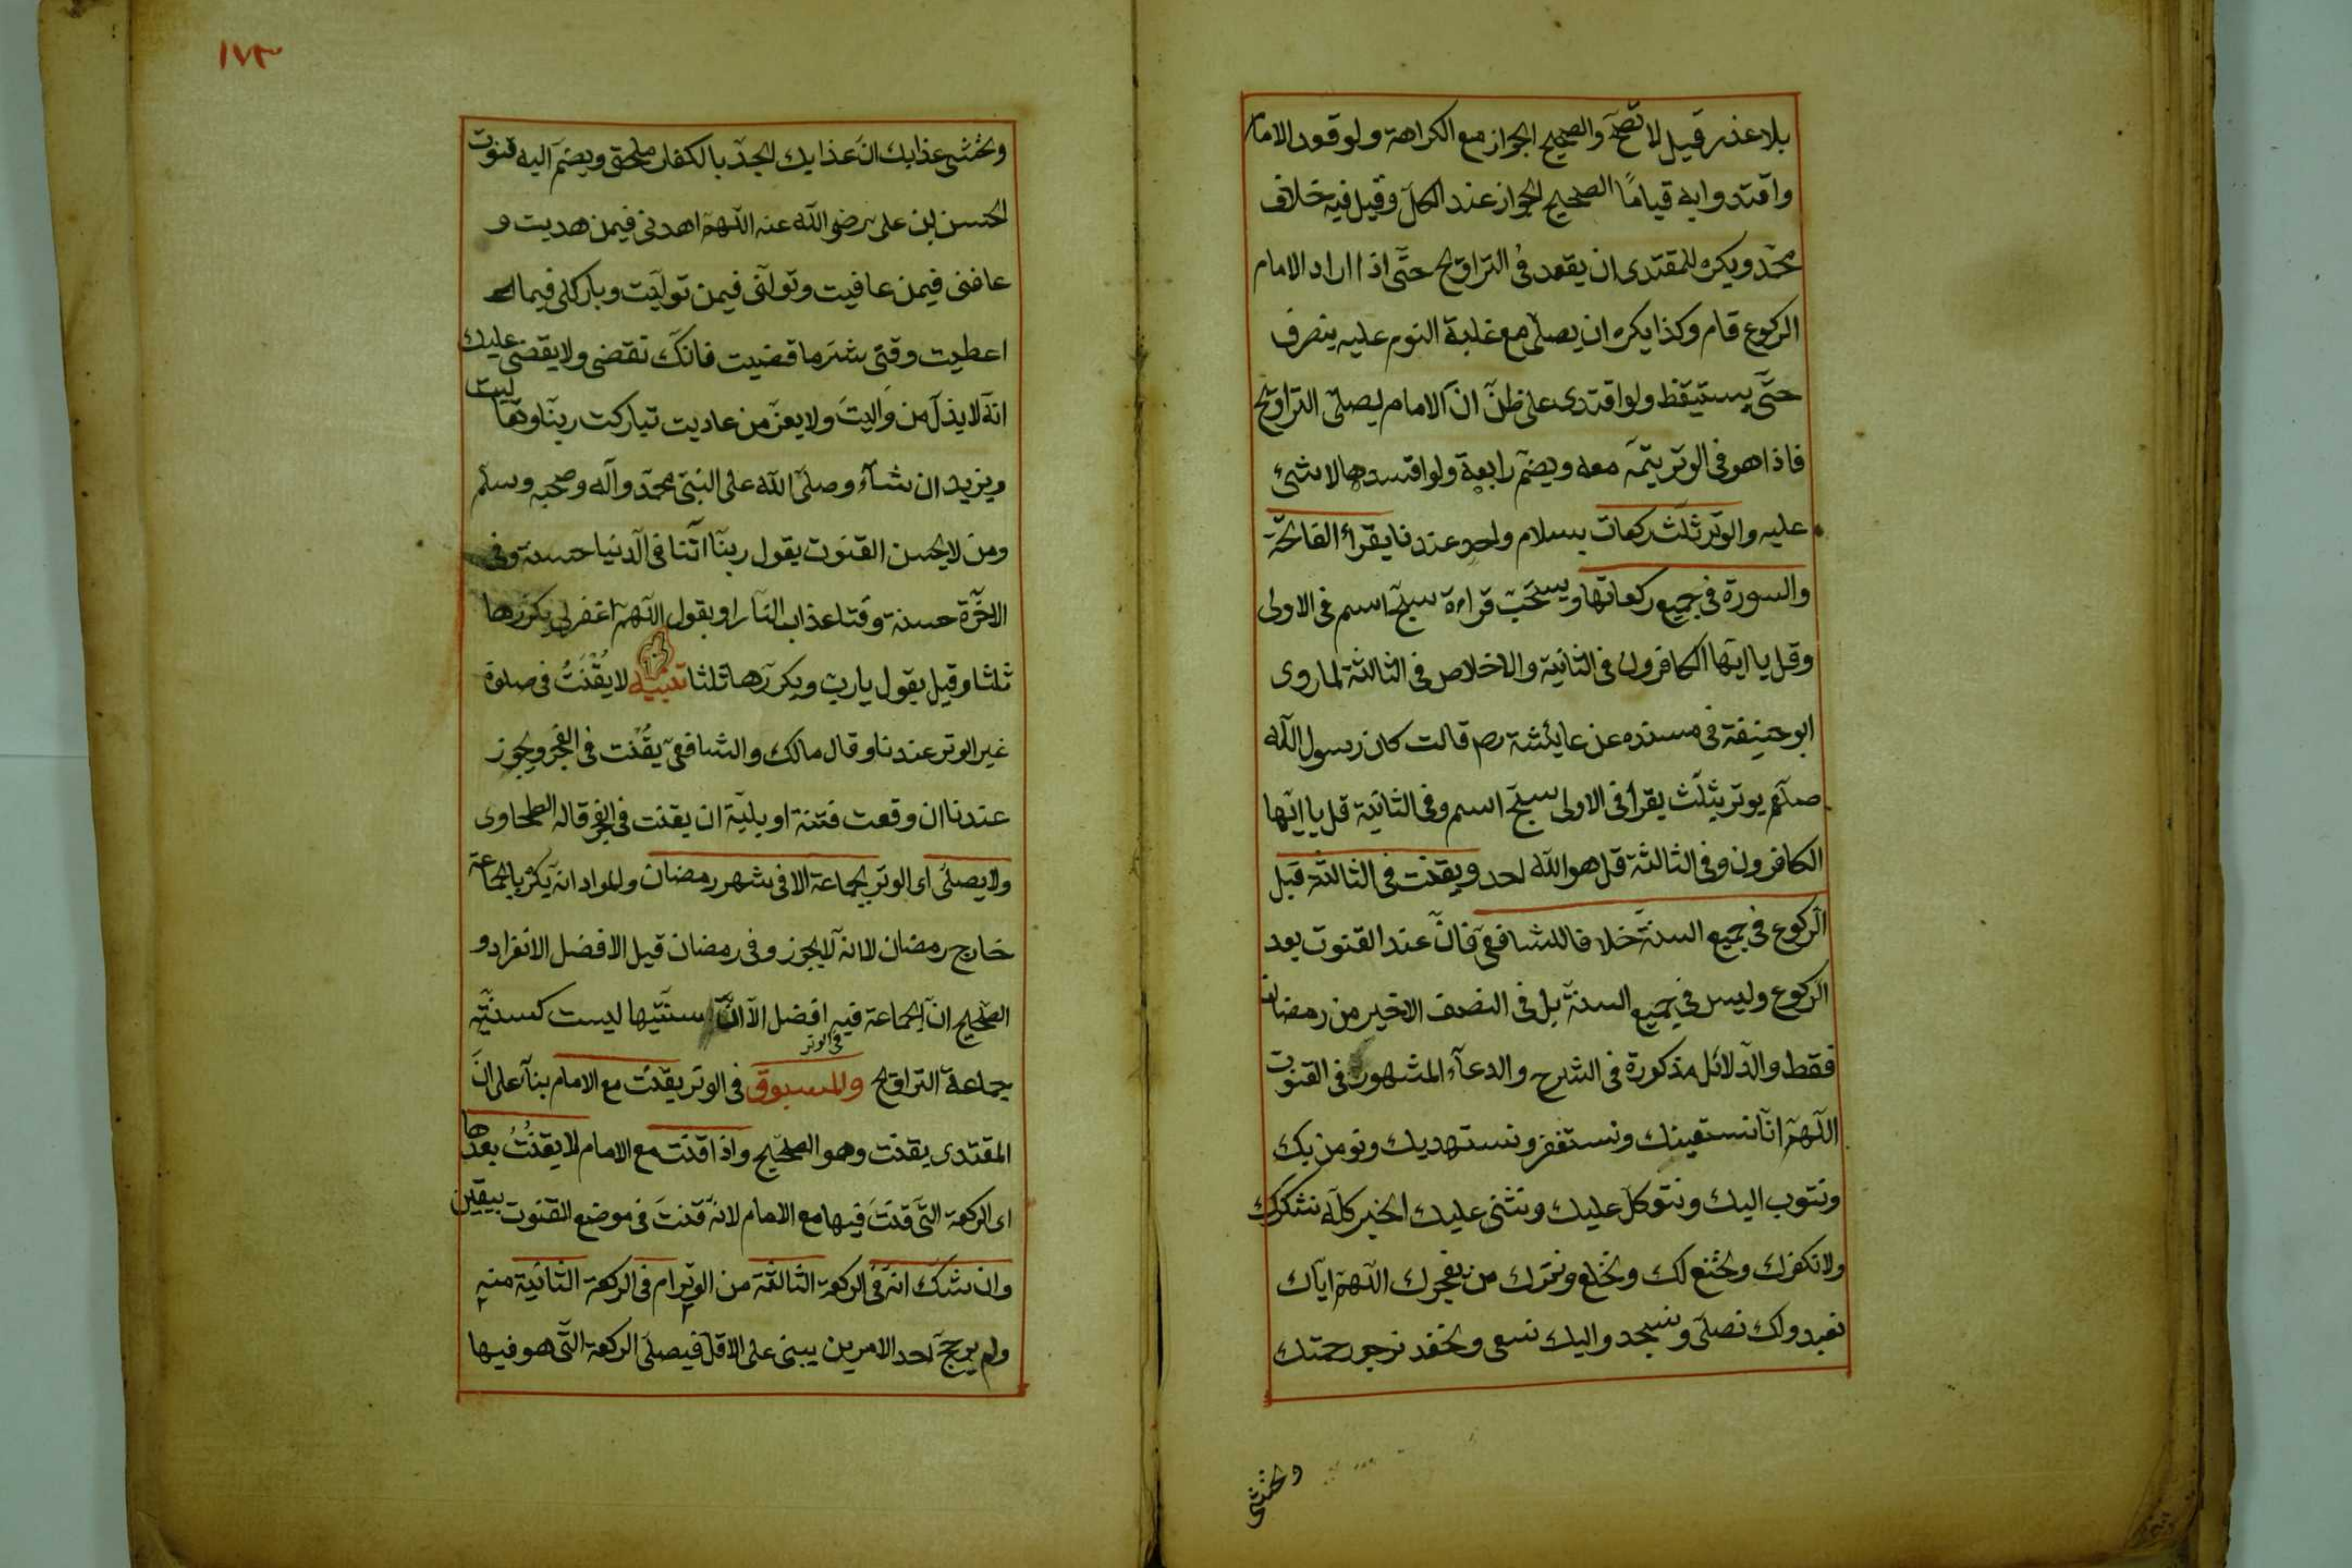 بلا عذر قيل لا تصح والصحيح الجواز مع الكراهة ولو قعد الامام
واقتدوا به قياما الصحيح الجواز عند الكل وقيل فيه خلاف
محمد ويكره للمقتدى ان يقعد فى التراويح حتى اذا اراد الامام
الركوع قام وكذا يكره ان يصلى مع غلبة النوم عليه ينصرف
حتى يستيقظ ولو اقتدى على ظن ان الامام يصلى التراويح
فاذا هو فى الوتر يتمه معه ويضم رابعة ولو افسدها لا شئ
عليه والوتر ثلث ركعات بسلام واحد عندنا يقرأ الفاتحة
والسورة فى جميع ركعاتها ويستحب قراءة سبح اسم فى الاولى
وقل يا ايها الكافرون فى الثانية والاخلاص فى الثالثة لما روى
ابو حنيفة فى مسنده عن عايشة رضـ قالت كان رسول الله
صلعم يوتر بثلث يقرأ فى الاولى سبح اسم وفى الثانية قل يا ايها
الكافرون وفى الثالثة قل هو الله احد ويقنت فى الثالثة قبل
الركوع فى جميع السنة خلافا للشافعى فان عند القنوت بعد
الركوع وليس فى جميع السنة بل فى النصف الاخير من رمضان
فقط والدلائل مذكورة فى الشرح والدعاء المشهور فى القنوت
اللهم انا نستعينك ونستغفر ونستهديك ونومن بك
ونتوب اليك ونتوكل عليك ونثنى عليك الخير كله نشكرك
ولا نكفرك ونخنع لك ونخلع ونترك من يفجرك اللهم اياك
نعبد ولك نصلى ونسجد واليك نسعى ونحفد نرجو رحمتك
ونخشى
١٧٣
ونخشى عذابك ان عذابك الجد بالكفار ملحق ويضم اليه قنوت
الحسن بن على رضى الله عنه اللهم اهدنى فيمن هديت و
عافنى فيمن عافيت وتولنى فيمن توليت وبارك لى فيما
اعطيت وقنى شر ما قضيت فانك تقضى ولا يقضى عليك
انه لا يذل من واليت ولا يعز من عاديت تباركت ربنا وتعاليت
ويزيد ان شاء وصلى الله على النبى محمد وآله وصحبه وسلم
ومن لا يحسن القنوت يقول ربنا اتنا فى الدنيا حسنة وفى
الاخرة حسنة وقنا عذاب النار او يقول اللهم اغفر لى يكررها
ثلثا وقيل يقول يا رب ويكررها ثلثا تنبيه لا يقنت فى صلوة
غير الوتر عندنا وقال مالك والشافعى يقنت فى الفجر ويجوز
عندنا ان وقعت فتنة او بلية ان يقنت فى الفجر قاله الطحاوى
ولا يصلى اى الوتر بجماعة الا فى شهر رمضان والمراد انه يكره بالجماعة
خارج رمضان لا انه لا يجوز وفى رمضان قيل الافضل الانفراد و
الصحيح ان الجماعة فيه افضل الا ان سنيتها ليست كسنية
فى الوتر
جماعة التراويح والمسبوق فى الوتر يقنت مع الامام بناء على ان
المقتدى يقنت وهو الصحيح واذا قنت مع الامام لا يقنت بعدها
اى الركعة التى قنت فيها مع الامام لانه قنت فى موضع القنوت بيقين
وان شك انه فى الركعة الثالثة من الوتر ام فى الركعة الثانية منه
ولم يرجح احد الامرين يبنى على الاقل فيصلى الركعة التى هو فيها